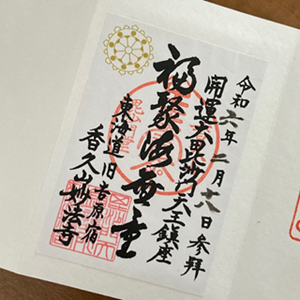 令和六年二月十八日参拝
開運大毘沙門天王鎮座
福聚海無量
東海道旧吉原宿
香久山妙法寺